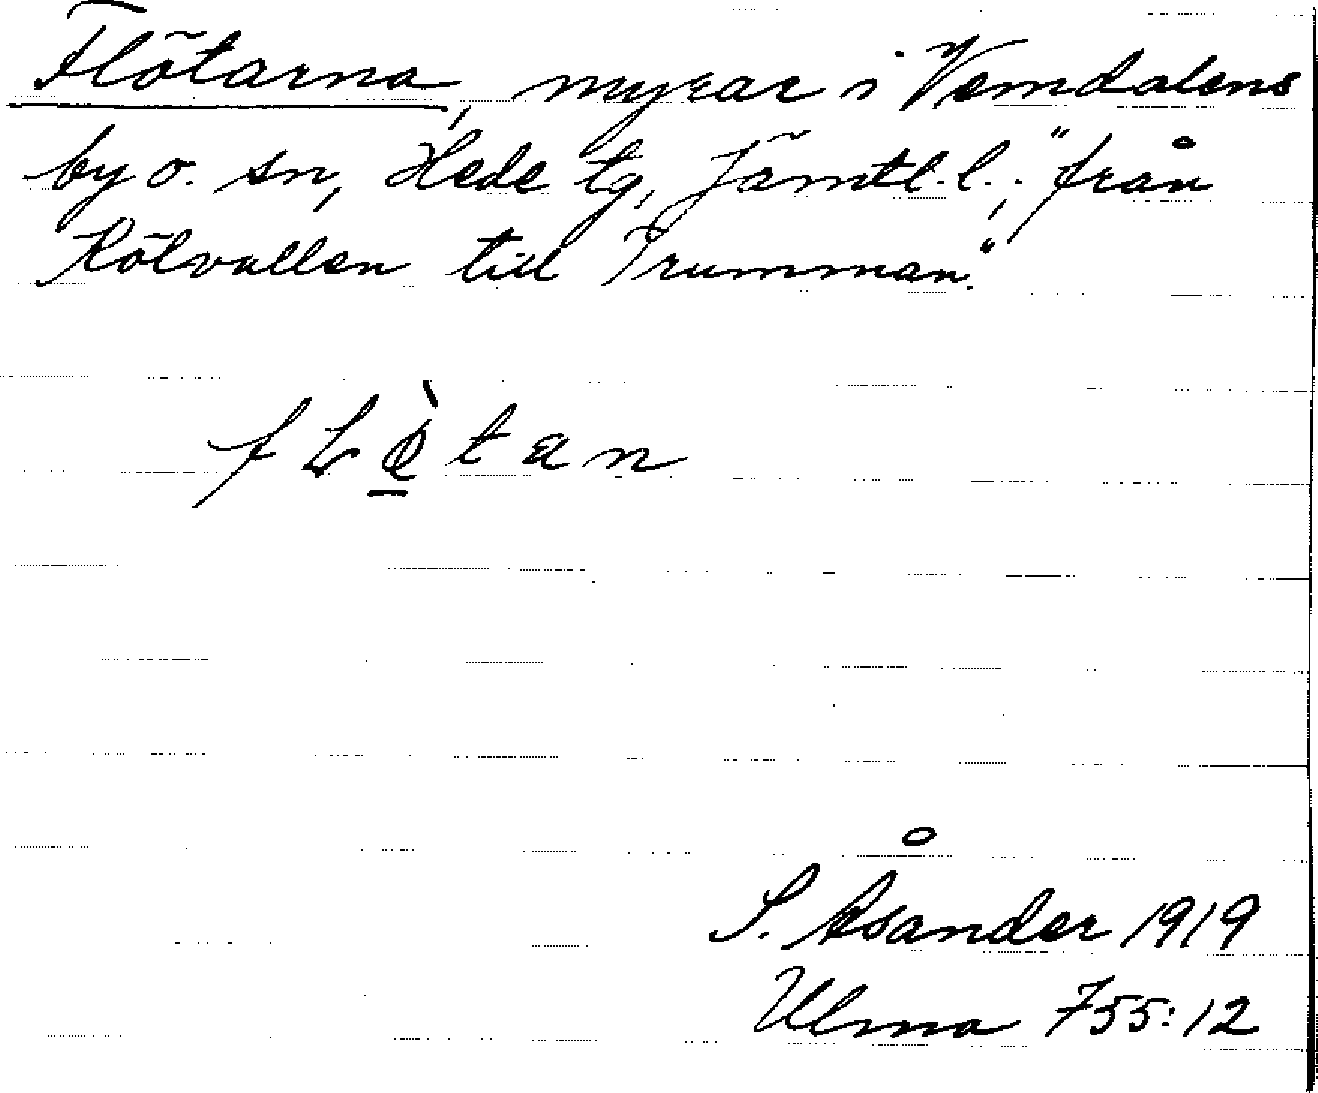 Flötarna, myrar i Vemdalens
by o. sn, Hede tg, Jämtl. l.; "från
Kölvallen till Trumman."
fLø̀tan
S. Åsander 1919
Ulma 755:12